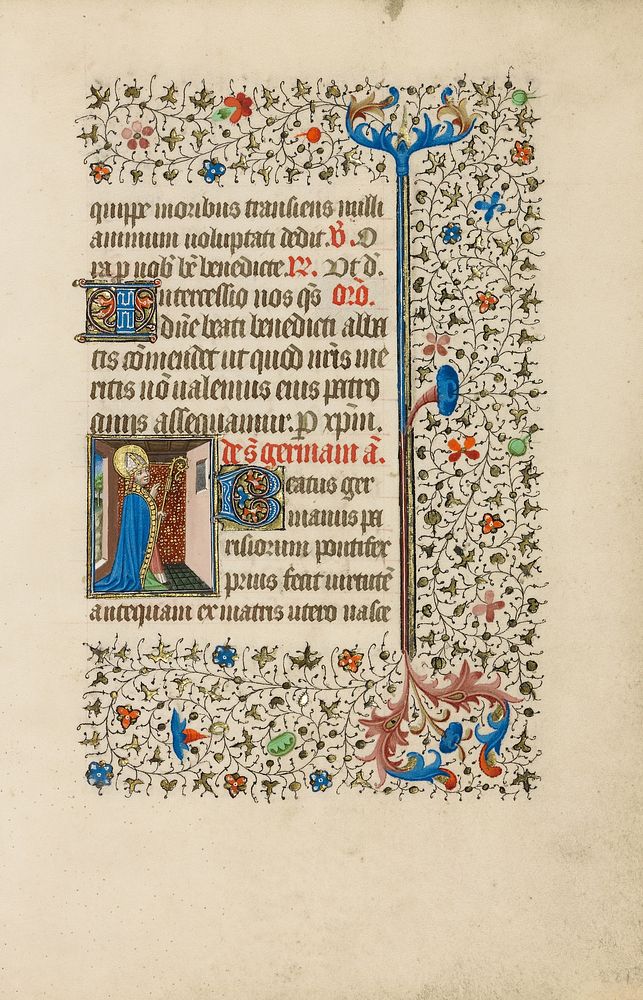 quippe moribus transiens nulli
animum uoluptati dedit. V. O
ra p nob̄ bē benedicte. R. Vt d.
Intercessio nos q̄s orō.
dn̄e beati benedicti abba
tis cōmendet ut quod nr̄is me
ritis nō ualemus eius patro
cinijs assequamur. P xp̄m.
de s̄ germani a.
Beatus ger
manus pa
risiorum pontifex
prius fecit uirtutē
antequam ex matris utero nasce